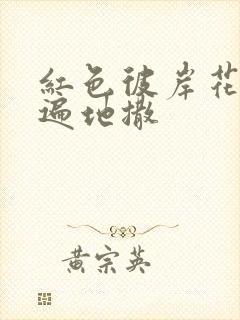 紅色彼岸花
遍地撒
黄宗英